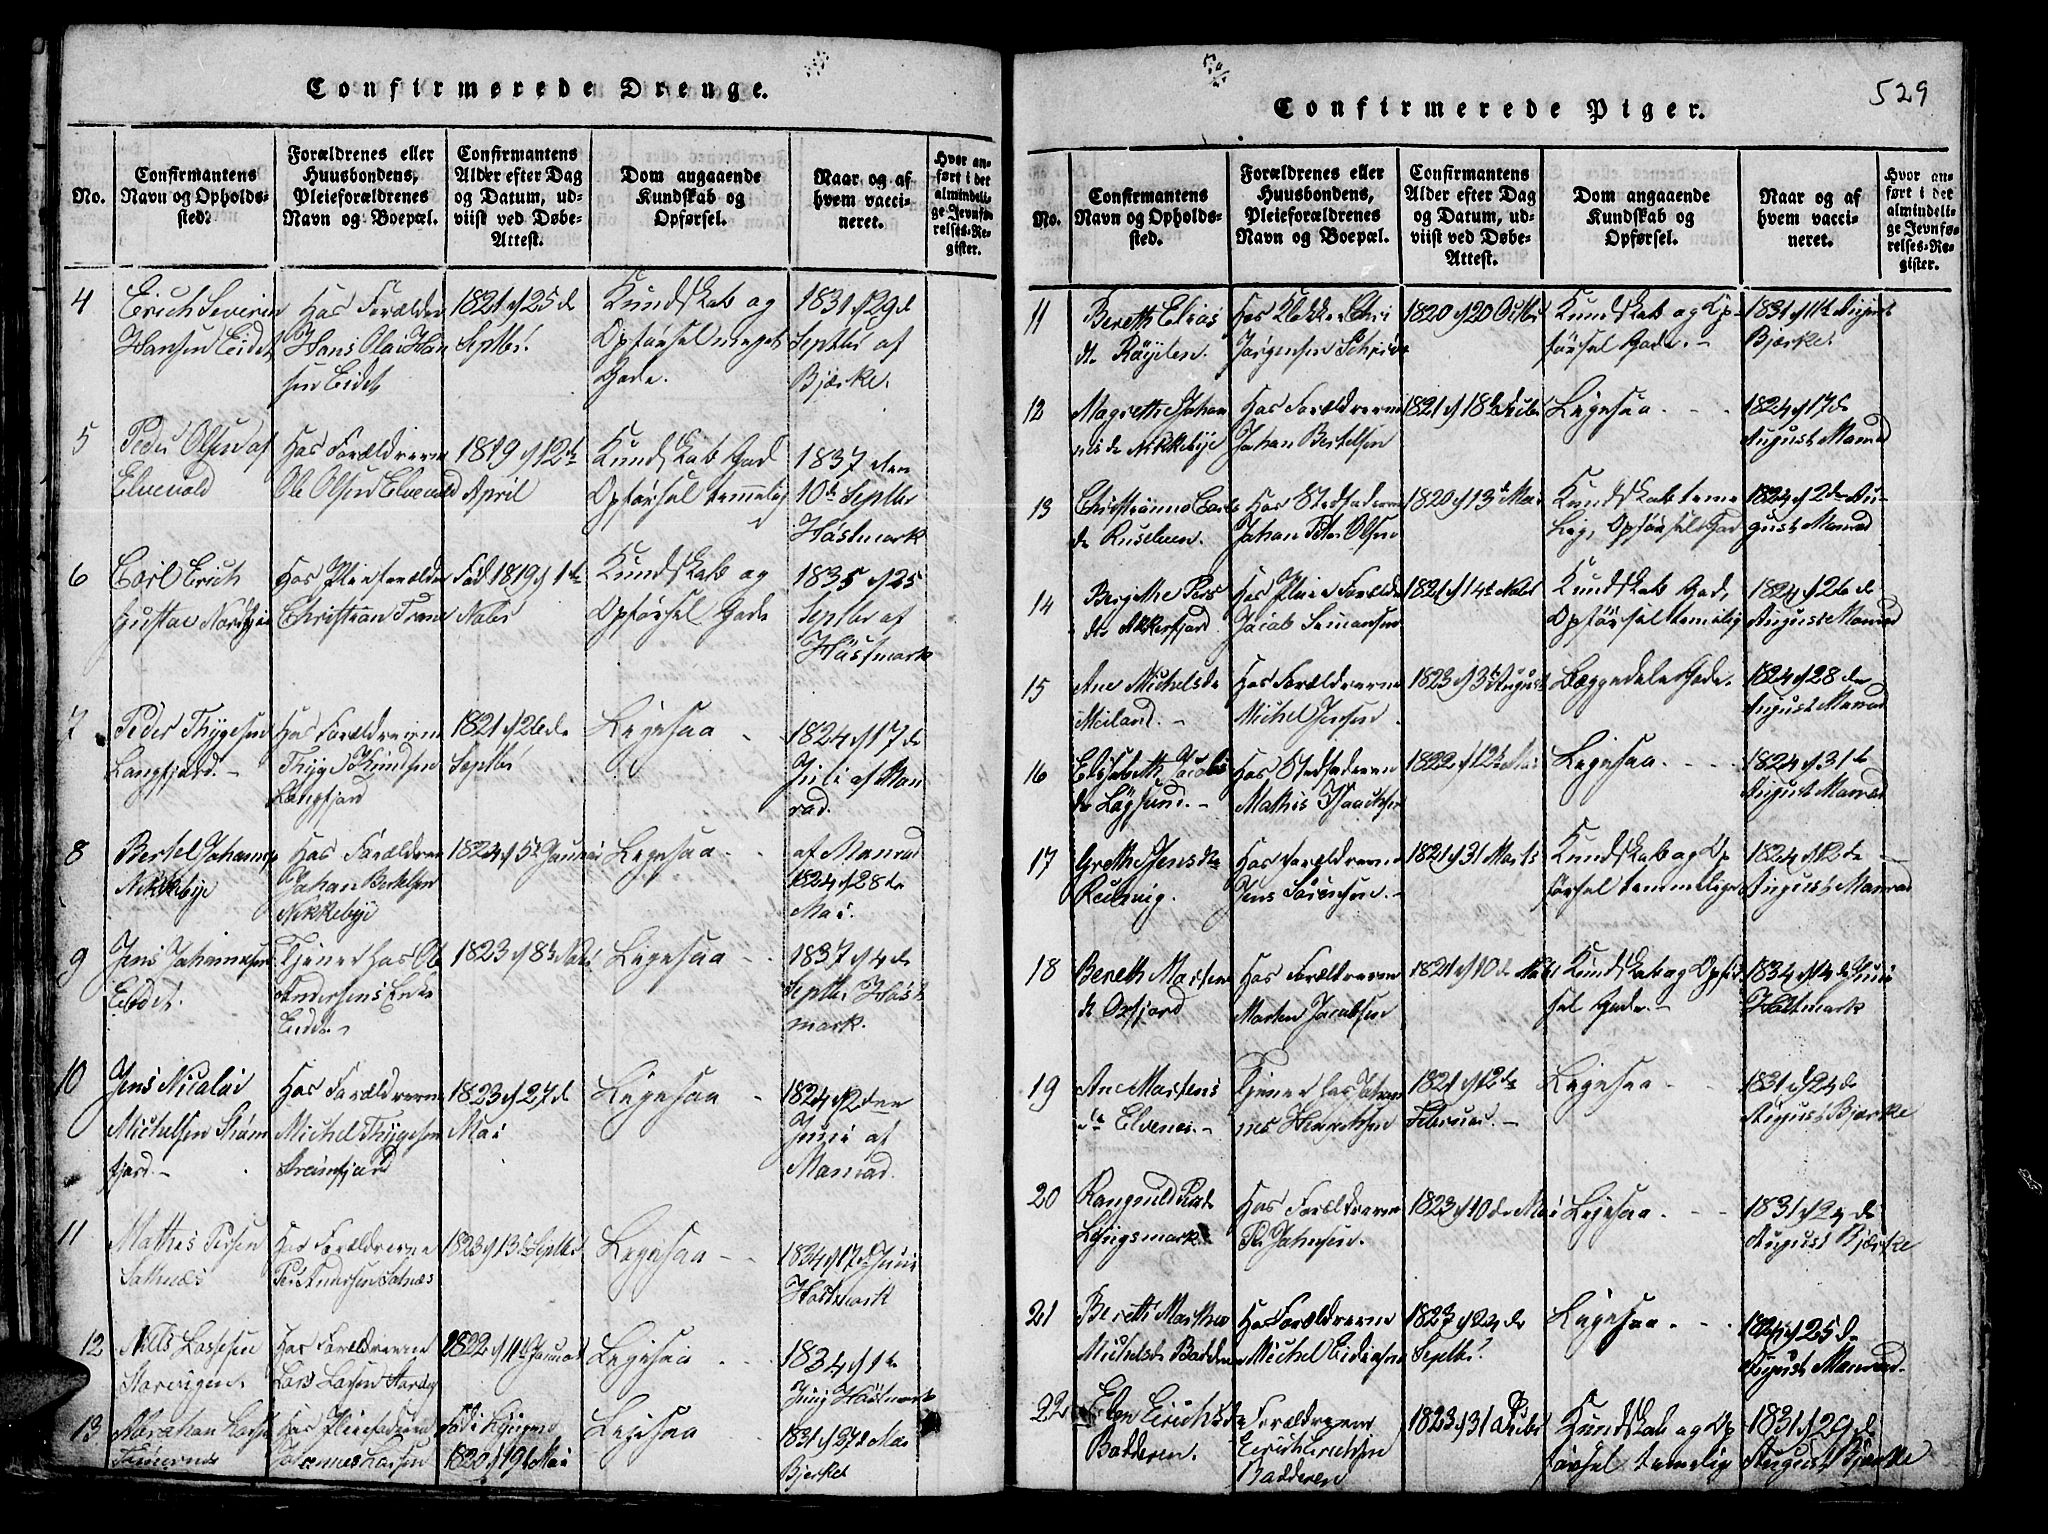 Confirmerede Drenge.
No.
Confirmantens
Navn og Opholds-
sted.
Forældrenes eller
Huusbondens,
Pleieforældrenes
Navn og Boepæl.
Confirmantens
Alder efter Dag
og Datum, ud-
viist ved Døbe-
Attest.
Dom angaaende
Kundskab og
Opførsel.
Naar og af
hvem vacci-
neret.
Hvor an-
ført i det
almindeli-
ge Jevnfø-
relses-Re-
gister.
4
Erich Severin
Hansen Eidet
Hos Forældre
Hans Olai Han
sen Eidet
1821 d 25 de
Septbr.
Kundskab og
Opførsel meget
Gode.
1831 d 29 d
Septbr af
Bjerke.
5
Peder Olsen af
Elvevold
Hos Forældrerne
Ole Olsen Elvevold
1819 d 12te
April
Kundskab God
Opførsel temmelig
1837 den
10de Septbr
Høstmark
6
Carl Erich
Gustav
Hos Pleieforældre
Christian
Fød 1819 d 1te
Nobr
Kundskab og
Opførsel Gode
1835 d 25
Septbr af
Høstmark
7
Peder Thygesen
Langfjord.-
Hos Forældrerne
Thyge Knudsen
Langfjord
1821 d 26 de
Septbr
Ligesaa -
1824 d 17 de
Juli af Man
rad.
8
Bertel Johans
Nikkebye
Hos Forældren
Johan Bertelsen
Nikkebye
1824 d 5te Januar
Ligesaa - -
af Manrad
1824 d 28 de
Mai.
9
Jens Johannesen
Eidet.
Tjener hos Ol
Andersens Enke
Eidet
1823 d 8de Nobr
Ligesaa - -
1837 d 4 de
Septbr Høst
mark.
10
Jens Nicolai
Michelsen Strøm
fjord.-
Hos Forældrerne
Michel Thygesen
Strømfjord
1823 d 27 de
Mai
Ligesaa -
1824 d 2 den
Juni af
Manrad.
11
Mathis Persen
Hos Forældrerne
Per Andersen
1823 d 13de Septbr
Ligesaa -
1834 d 17 de Juni
Høstmark
12
Nils Larsen
Storvigen.
Hos Forældrerne
Lars Larsen Storvig
1822 d 11te Januar
Ligesaa
1834 d 1te
Juni Høstmark
13
Abraham Larsen
Hos Pleiefaderen
Johannes Larsen
Fød i Lyngen
1820 d 19de Mai
Ligesaa
1831 d 31 de Mai
Bjerke
529
Confirmerede Piger.
No.
Confirmantens
Navn og Opholds-
sted.
Forældrenes eller
Huusbondens,
Pleieforældrenes
Navn og Boepæl.
Confirmantens
Alder efter Dag
og Datum, ud-
viist ved Døbe-
Attest.
Dom angaaende
Kundskab og
Opførsel.
Naar og af
hvem vacci-
neret.
Hvor an-
ført i det
almindeli-
ge Jevnfø-
relses-Re-
gister.
11
Bereth Elias
dtr Røyelen.
Hos Klokker
Jørgensen
1820 d 20 Octbr
Kundskab og Op-
førsel Gode. -
1831 d 11te August
Bjerke.
12
Magrethe Johan
nisdr Nikkebye
Hos Forældrerne
Johan Bertelsen
1821 d 18de Decbr
Ligesaa. - -
1824 d 17 de
August Manrad
13
Hos Stedfaderen
Johan Peter Olsen
1820 d 13de Mai
Kundskab teme
lig, Opførsel God
1824 d 2 de Au-
gust Manrad
14
Birgithe Pers
dtr Akkerfjord
Hos Pleie Forældre
Jacob Simonsen
1821 d 14de Nobr
Kundskab God,
Opførsel temelig
1824 d 26 de
August Manrad
15
Ane Michelsdr
Meiland. -
Hos Forældrerne
Michel Jensen
1823 d 3de August
Beggedele Gode.
1824 d 28 de
August Manrad
16
Elisabeth Jacobs
dr Løgsund. -
Hos Stedfaderen
Mathis Isaachsen
1822 d 12te Mai
Ligesaa. - - -
1824 d 31te
August Manrad
17
Grethe Jensdr
Reinvig.
Hos Forældrerne
Jens Sørensen. -
1821 d 31 Marts
Kundskab og Op
førsel temmelige
1824 d 12 de
August Manrad
18
Bereth Martens
dr Oxfjord
Hos Forældrerne
Morten Jacobsen
1821 d 10 de Nobr
Kundskab og Opfør
sel Gode. -
1834 d 14 de Juni
Høstmark
19
Ane Martens
dr Elvenes. -
Tjener hos Johan
nes Henrichsen
1821 d 12 de
Februar. -
Ligesaa - -
1831 d 24 de
August Bjerke
20
Rangnild Persdr
Lyngsmark
Hos Forældrerne
Per Johnsen.
1823 d 10 de Mai
Ligesaa. - -
1831 d 24 de
August Bjerke
21
Bereth Marthe
Michelsdr Badderen
Hos Forældrerne
Michel
1823 d 24 de
Septbr.
Ligesaa. - -
1824 d 25 de
August Manrad.
22
Elen Erichsdr
Badderen.
Forældrerne
Erich Erichsen
Badderen
1823 d 31 Decbr
Kundskab og Op
førsel temelig
1831 d 29 de
August Bjerke